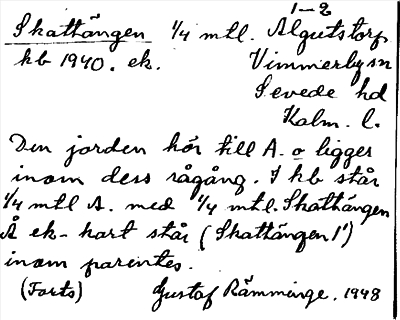 1-2
Skattängen 1/4 mtl. Algutstorp
hb 1940. ek. Vimmerby sn
Sevede hd
Kalm. l.
Den jorden hör till A. o ligger
inom dess rågång. I hb står
1/4 mtl A. med 1/4 mtl. Skattängen
Å ek-kart står (Skattängen 1')
inom parentes.
(Forts) Gustaf Rämminge. 1948